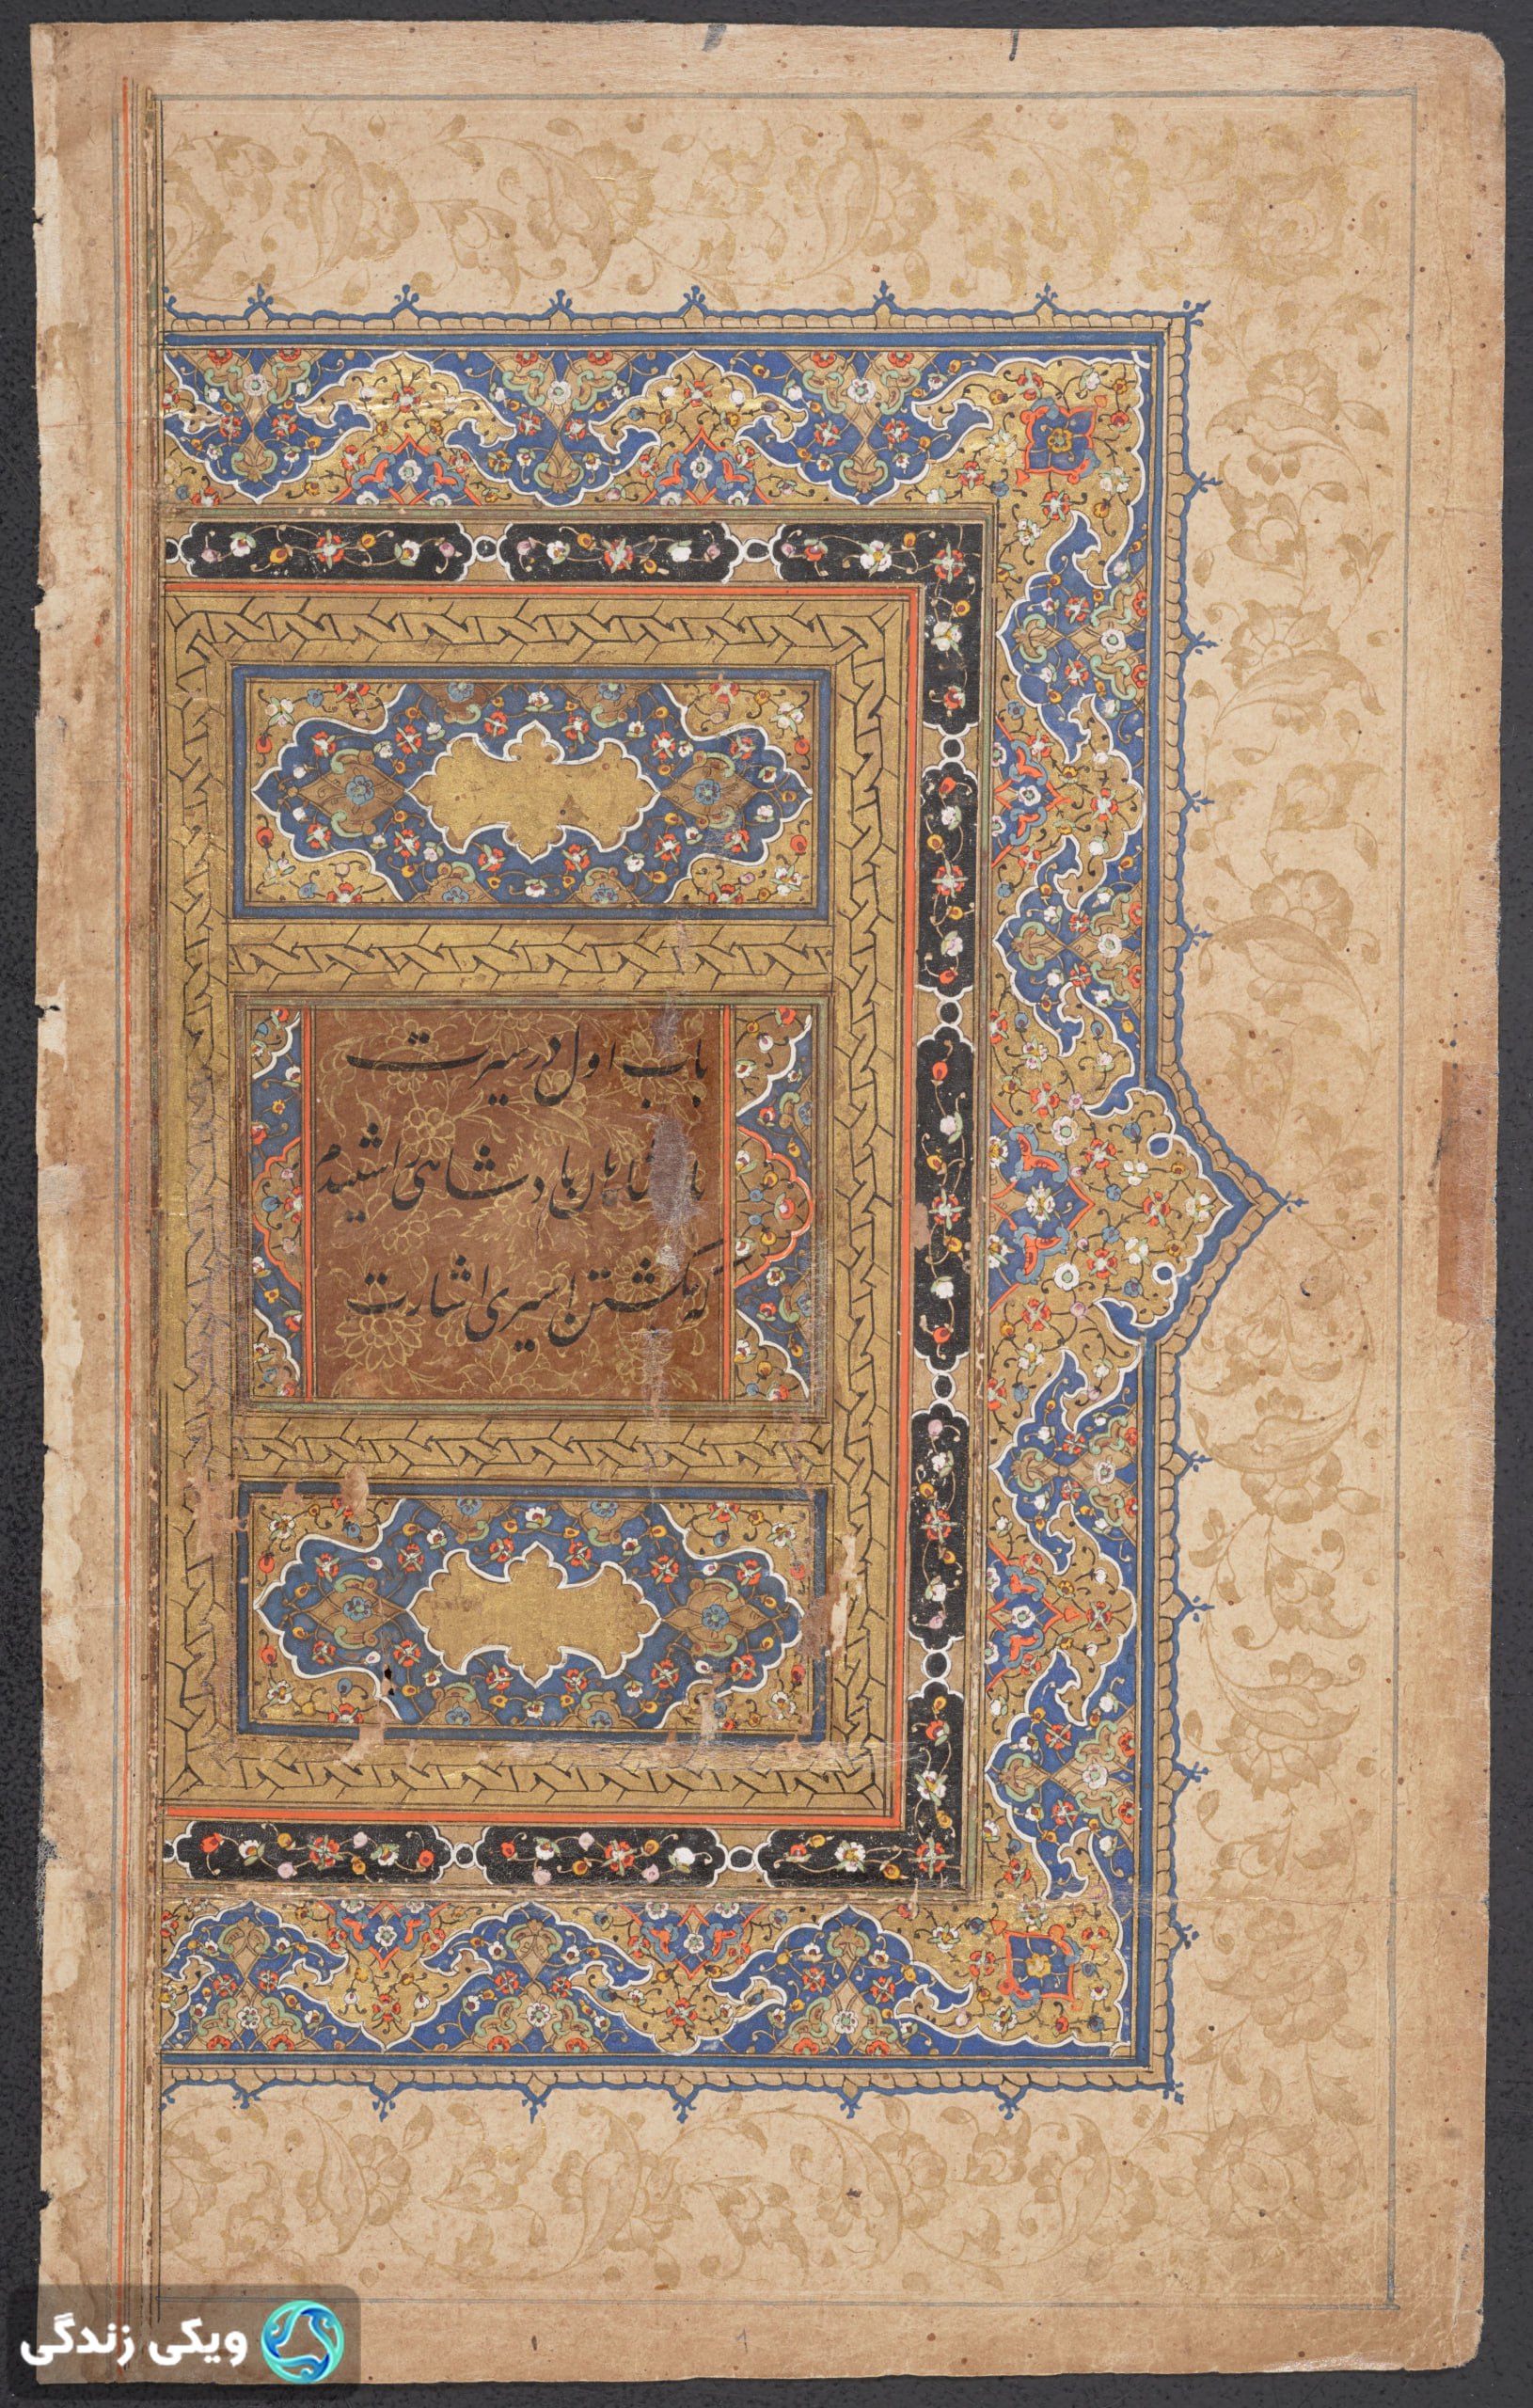 باب اول در سیرت
پادشاهان پادشاهی را شنیدم
که بکشتن اسیری اشارت
ویکی زندگی